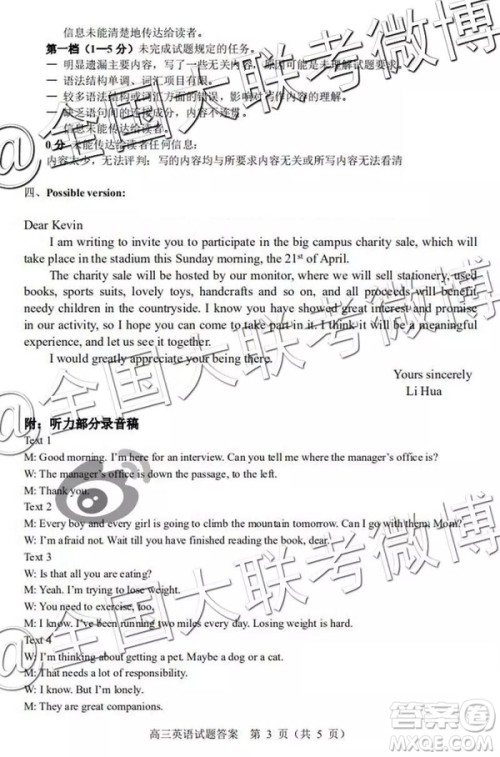 信息未能清楚地传达给读者。
第一档（1—5 分）未完成试题规定的任务。
— 明显遗漏主要内容，写了一些无关内容，原因可能是未理解试题要求。
— 语法结构单调、词汇项目有限。
— 较多语法结构或词汇方面的错误，影响对写作内容的理解。
— 缺乏语句间的连接成分，内容不连贯。
— 信息未能传达给读者。
0 分 未能传达给读者任何信息：
内容太少，无法评判；写的内容均与所要求内容无关或所写内容无法看清
四、Possible version:
Dear Kevin
I am writing to invite you to participate in the big campus charity sale, which will
take place in the stadium this Sunday morning, the 21st of April.
The charity sale will be hosted by our monitor, where we will sell stationery, used
books, sports suits, lovely toys, handcrafts and so on, and all proceeds will benefit
needy children in the countryside. I know you have showed great interest and promise
in our activity, so I hope you can come to take part in it. I think it will be a meaningful
experience, and let us see it together.
I would greatly appreciate your being there.
Yours sincerely
Li Hua
附：听力部分录音稿
Text 1
M: Good morning. I'm here for an interview. Can you tell me where the manager's office is?
W: The manager's office is down the passage, to the left.
M: Thank you.
Text 2
M: Every boy and every girl is going to climb the mountain tomorrow. Can I go with them, Mom?
W: I'm afraid not. Wait till you have finished reading the book, dear.
Text 3
W: Is that all you are eating?
M: Yeah. I'm trying to lose weight.
W: You need to exercise, too.
M: I know. I've been running two miles every day. Losing weight is hard.
Text 4
W: I'm thinking about getting a pet. Maybe a dog or a cat.
M: That needs a lot of responsibility.
W: I know. But I'm lonely.
M: They are great companions.
高三英语试题答案 第 3 页（共 5 页）
@全国大联考微博
@全国大联考微博